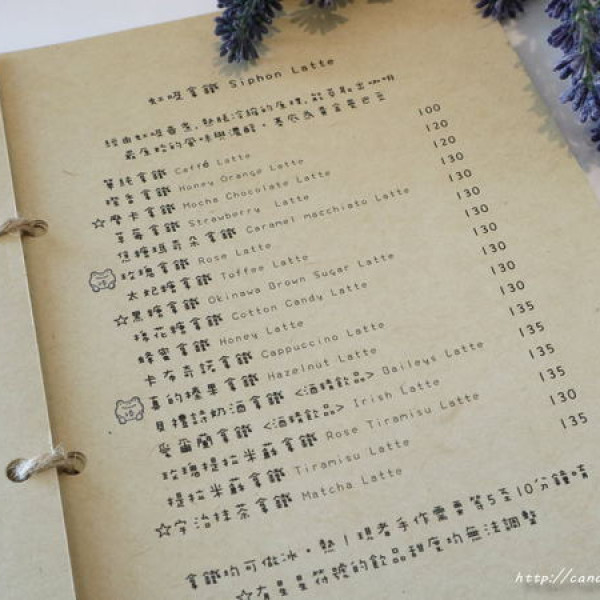 虹吸拿鐵 Siphon Latte
經由虹吸壺煮,熱脹冷縮的原理,能萃取出咖啡
最原始的風味與濃醇。
單純拿鐵 Caffé Latte 100
橙香拿鐵 Honey Orange Latte 120
☆摩卡拿鐵 Mocha Chocolate Latte 120
草莓拿鐵 Strawberry Latte 130
焦糖瑪奇朵拿鐵 Caramel macchiato Latte 130
玫瑰拿鐵 Rose Latte 130
太妃糖拿鐵 Toffee Latte 130
☆黑糖拿鐵 Okinawa Brown Sugar Latte 130
棉花糖拿鐵 Cotton Candy Latte 130
蜂蜜拿鐵 Honey Latte 130
卡布奇諾拿鐵 Cappuccino Latte 130
真的榛果拿鐵 Hazelnut Latte 135
貝禮詩奶酒拿鐵 <酒精飲品> Baileys Latte 135
愛爾蘭拿鐵 <酒精飲品> Irish Latte 135
玫瑰提拉米蘇拿鐵 Rose Tiramisu Latte 135
提拉米蘇拿鐵 Tiramisu Latte 130
☆宇治抹茶拿鐵 Matcha Latte 135
拿鐵均可做冰、熱|現煮手作需要等5至10分鐘唷
☆有星星符號的飲品甜度均無法調整